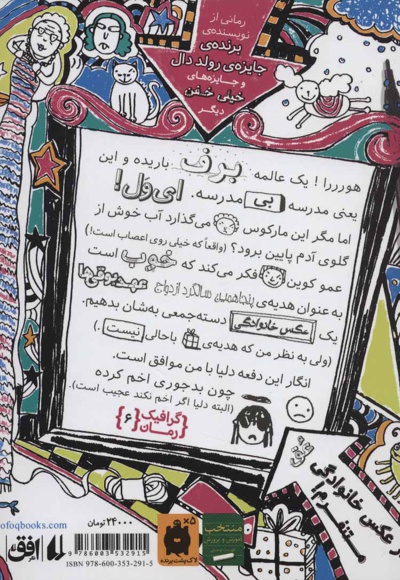 رمانی از
نویسنده‌ی
برنده‌ی
جایزه‌ی رولد دال
و جایزه‌های
خیلی خفن
دیگر
هوررررا! یک عالمه برف باریده و این
یعنی مدرسه بی مدرسه. ای‌ول!
اما مگر این مارکوس می‌گذارد آب خوش از
گلوی آدم پایین برود؟ (واقعاً که خیلی روی اعصاب است!)
عمو کوین فکر می‌کند که خوب است
به عنوان هدیه‌ی پنجاهمین سالگرد ازدواج عهدبوقی‌ها
یک عکس خانوادگی دسته‌جمعی به‌شان بدهیم.
(ولی به نظر من که هدیه‌ی باحالی نیست.)
انگار این دفعه دلیا با من موافق است.
چون بدجوری اخم کرده
(البته دلیا اگر اخم نکند عجیب است).
گرافیک
رمان
{۶}
از عکس خانوادگی
متنفرم!
۲۴۰۰۰ تومان
منتخب
×۵
لاک‌پشت پرنده
ofoqbooks.com
افق
9786003532915
ISBN 978-600-353-291-5